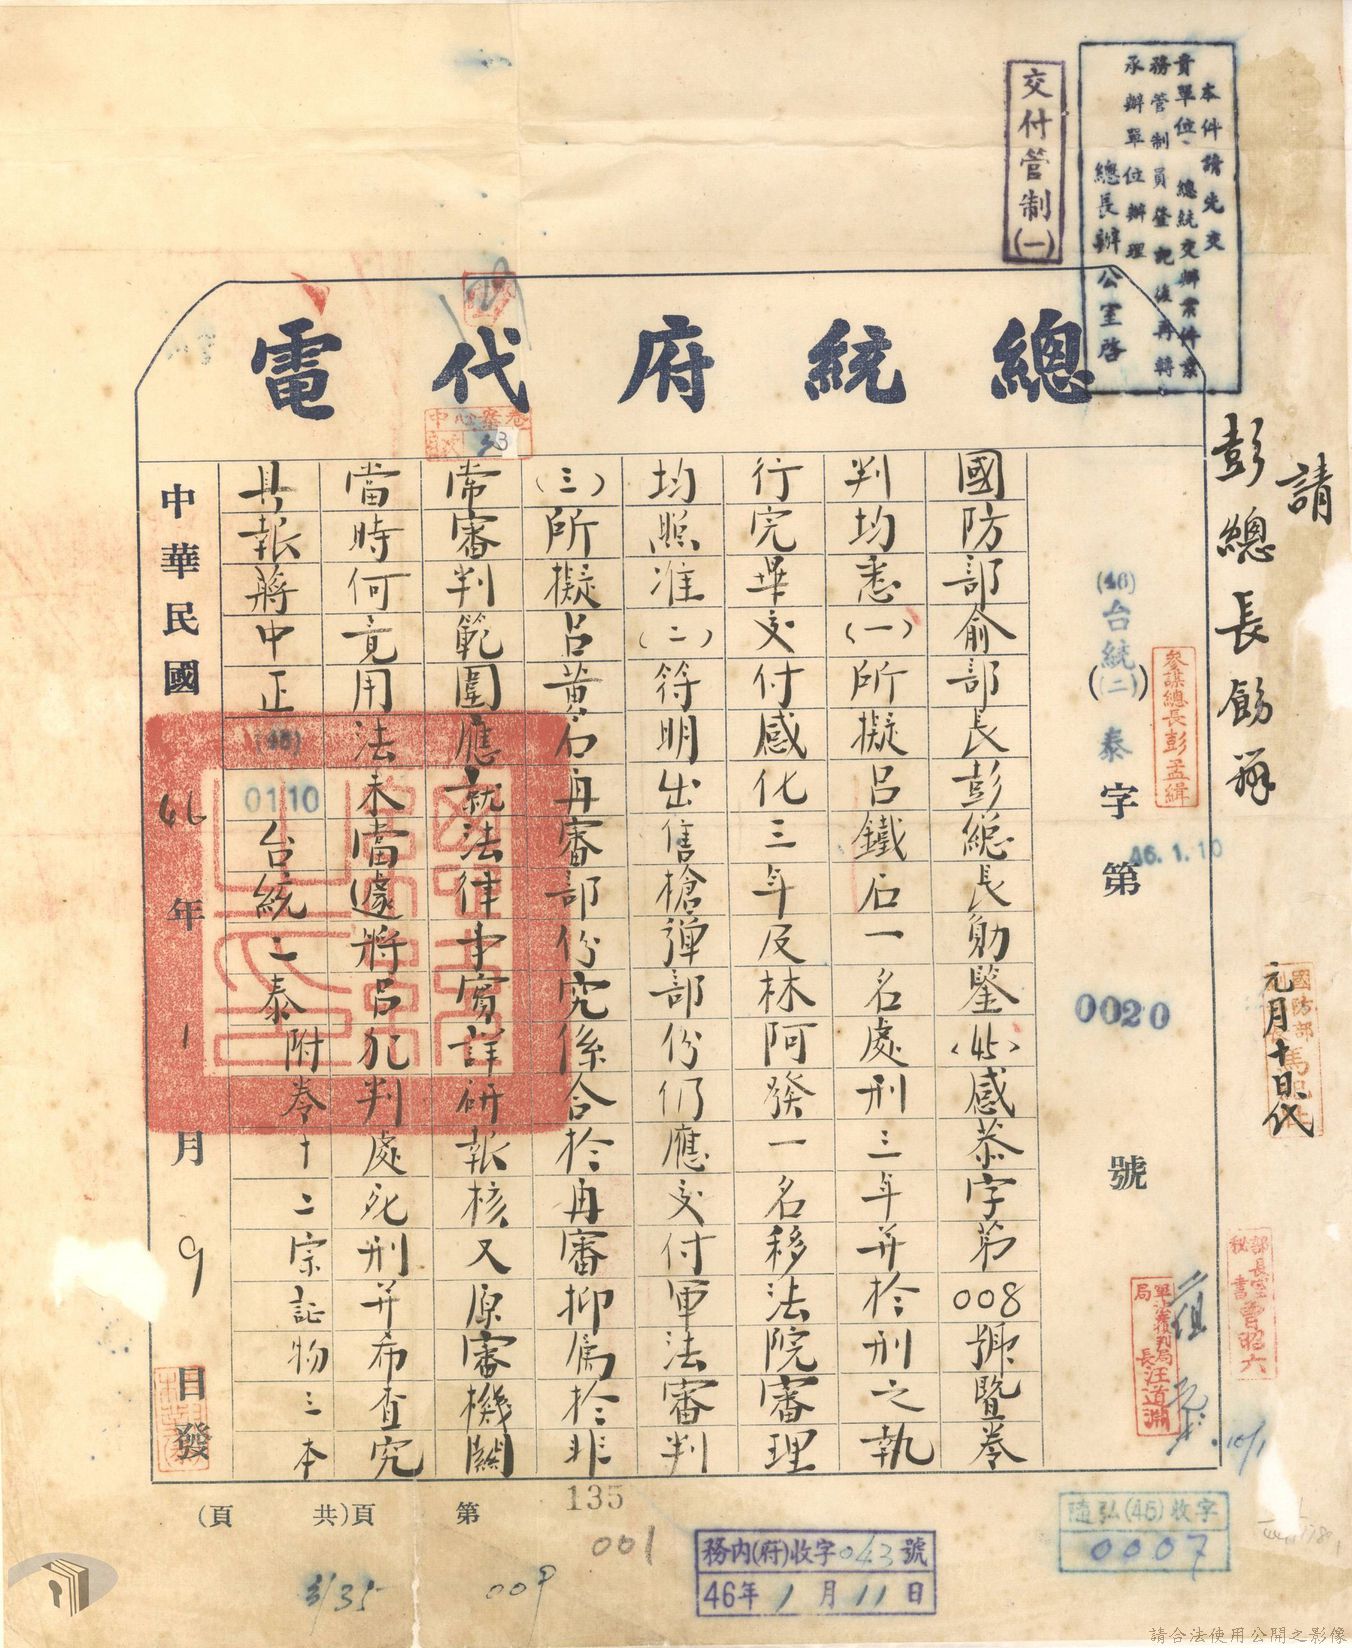 本件請先交
貴單位、總統交辦案件業
務管制員登記後再轉、
承辦單位辦理
總長辦公室啓
交付管制(一)
總統府代電
請
彭總長飭辦
元月十日代
國防部
參謀總長彭孟緝
(46)台統(二)泰字第0020號
46.1.10
國防部俞部長彭總長勛鑒(45)感恭字第008號暨卷
判均悉(一)所擬呂鐵石一名處刑三年并於刑之執
行完畢交付感化三年及林阿發一名移法院審理
均照准(二)符明出售槍彈部份仍應交付軍法審判
(三)所擬呂黃石再審部份究係合於再審抑屬於非
常審判範圍應就法律事實詳研報核又原審機關
當時何竟用法未當遽將呂犯判處死刑并希查究
具報蔣中正(46)0110台統二泰附卷十二宗証物三本
中華民國46年1月9日發
部長室
秘書曹昭六
軍法覆判局
局長汪道淵
10/1
中心案卷
3
第 頁(共 頁)
135
001
009
3/35
務內(府)收字043號
46年1月11日
隨弘(46)收字
0007
請合法使用公開之影像